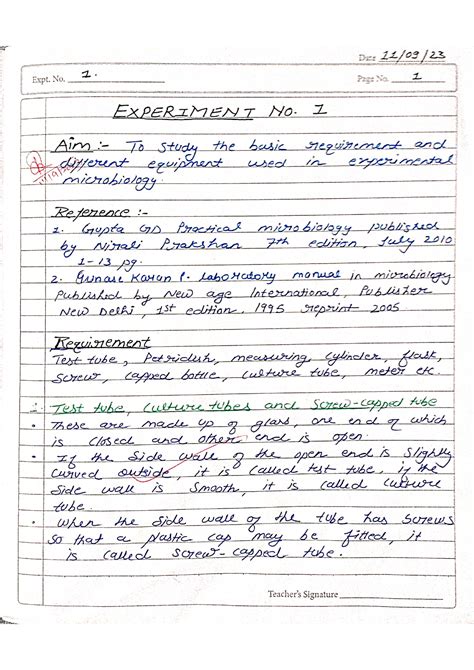 Date 11/09/23
Expt. No. 1.
Page No. 1
EXPERIMENT NO. 1
Aim :- To study the basic requirement and
different equipment used in experimental
microbiology.
Reference :-
1. Gupta GD Practical microbiology published
by Nirali Prakshan 7th edition, July 2010
1-13 pg.
2. Gunase Karan P. laboratory manual in microbiology
Published by New age International, Publisher
New Delhi, 1st edition. 1995 reprint 2005
Requirement
Test tube, Petridish, measuring, Cylinder, flask,
Screw, capped bottle, culture tube, meter etc.
Test tube, Culture tubes and Screw-capped tube
• These are made up of glass, one end of which
is closed and other end is open.
• If the side wall of the open end is slightly
curved outside, it is called test tube, if the
side wall is smooth, it is called culture
tube.
• When the side wall of the tube has screws
so that a plastic cap may be fitted, it
is called screw-capped tube.
Teacher's Signature